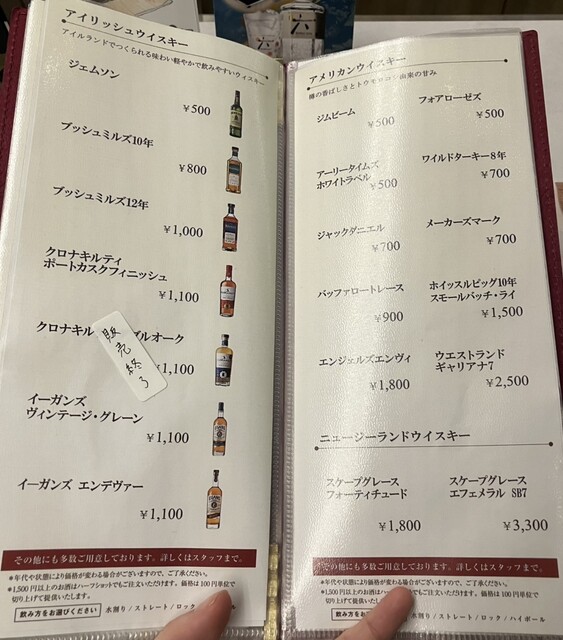 アイリッシュウイスキー
アイルランドでつくられる味わい軽やかで飲みやすいウイスキー
ジェムソン
￥500
ブッシュミルズ10年
￥800
ブッシュミルズ12年
￥1,000
クロナキルティ
ポートカスクフィニッシュ
￥1,100
クロナキル
ブルオーク
販売終了
￥1,100
イーガンズ
ヴィンテージ・グレーン
￥1,100
イーガンズ エンデヴァー
￥1,100
その他にも多数ご用意しております。詳しくはスタッフまで。
*年代や状態により価格が変わる場合がございますので、ご了承ください。
*1,500円以上のお酒はハーフショットでもご注文いただけます。価格は100円単位で
切り上げて提供いたします。
飲み方をお選びください 水割り/ストレート/ロック
アメリカンウイスキー
樽の香ばしさとトウモロコシ由来の甘み
ジムビーム
￥500
フォアローゼズ
￥500
アーリータイムズ
ホワイトラベル
￥500
ワイルドターキー8年
￥700
ジャックダニエル
￥700
メーカーズマーク
￥700
バッファロートレース
￥900
ホイッスルピッグ10年
スモールバッチ・ライ
￥1,500
エンジェルズエンヴィ
￥1,800
ウエストランド
ギャリアナ7
￥2,500
ニュージーランドウイスキー
スケープグレース
フォーティチュード
￥1,800
スケープグレース
エフェメラル SB7
￥3,300
その他にも多数ご用意しております。詳しくはスタッフまで。
*年代や状態により価格が変わる場合がございますので、ご了承ください。
*1,500円以上のお酒は
ーフショットでもご注文いただけます。価格は100円単位で
切り上げて提供いた
飲み方をお選びください
水割り/ストレート/ロック/ハイボール